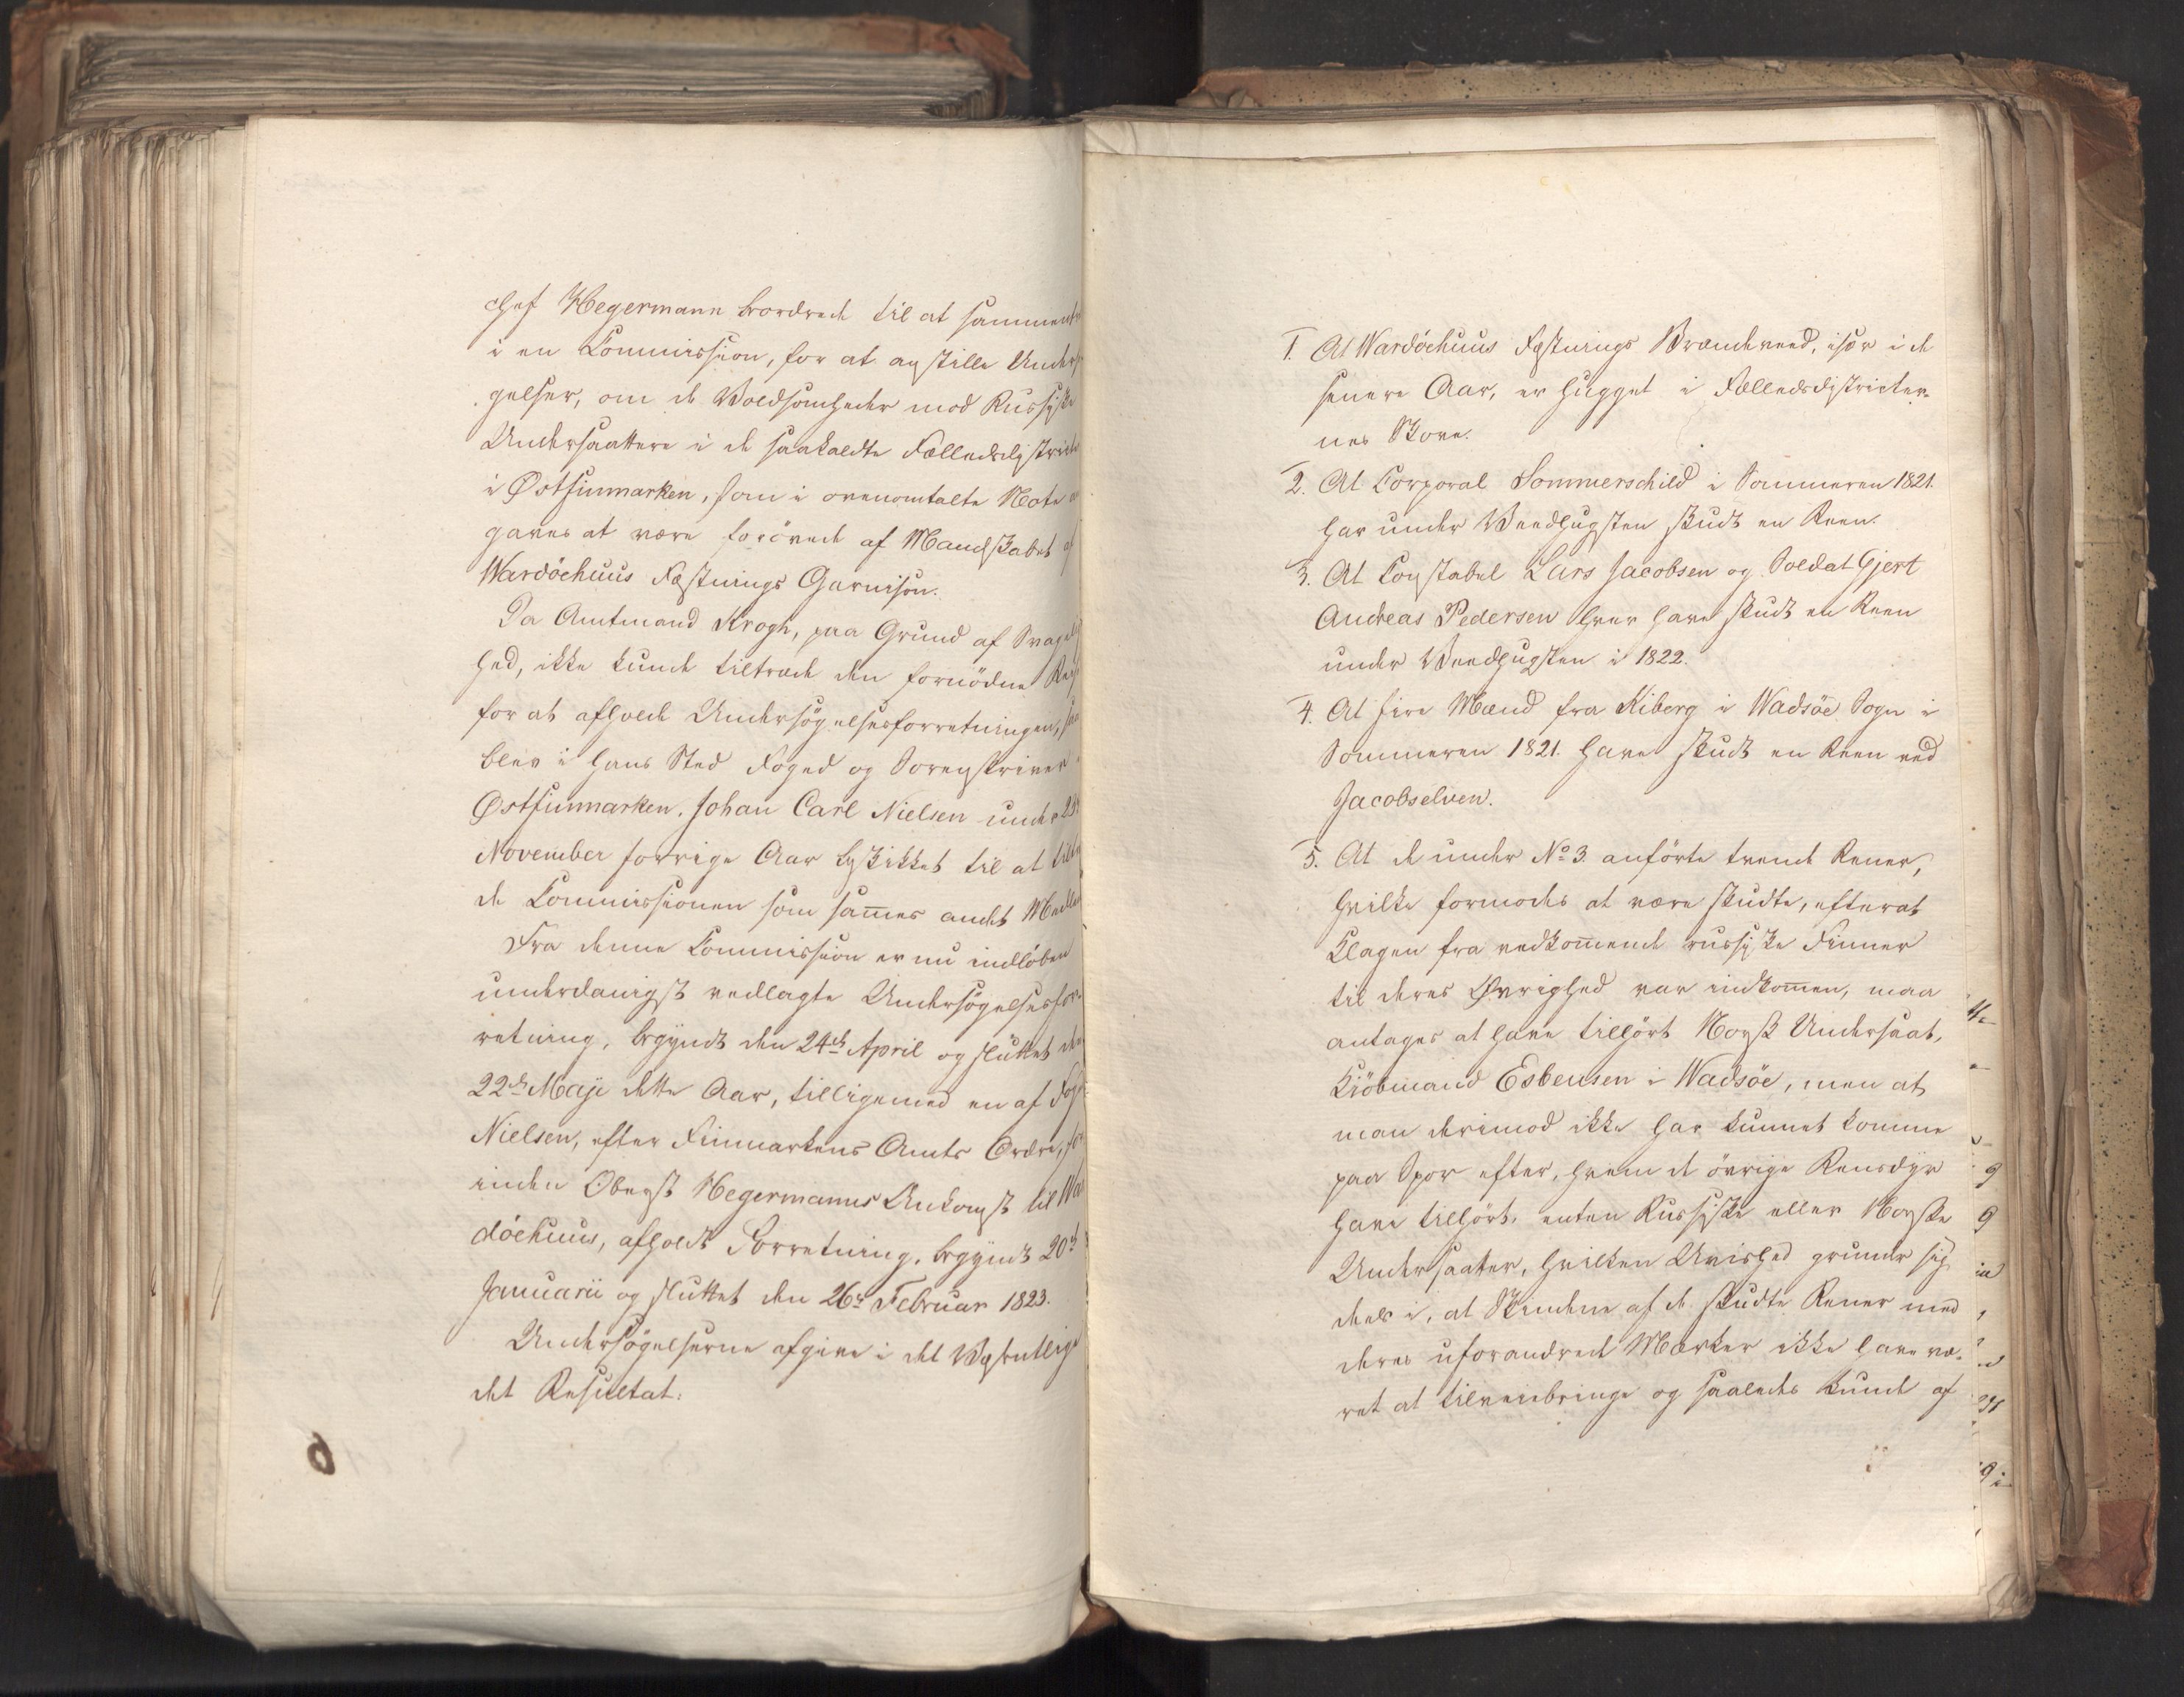 chef Hegermann beordrede til at sammentr
i en Commission, for at anstille Undersø
gelser, om de Voldsomheder mod Russiske
Undersaattere i de saakaldte Fælledsdistricter
i Østfinmarken, som i ovenomtalte Note an
gaves at være forövede af Mandskabet af
Wardöehuus Fæstnings Garnison.
Da Amtmand Krogh, paa Grund af Svagelig
hed, ikke kunde tiltræde den fornödne Reise
for at afholde Undersögelsesforretningen, saa
blev i hans Sted Foged og Sorenskriver i
Østfinmarken, Johan Carl Nielsen under 25
November forrige Aar beskikket til at tiltræ
de Commissionen som sam̄es andet Medlem
Fra denne Commission er nu indlöben
underdanigst vedlagte Undersögelsesfor-
retning, begyndt den 24de April og sluttet den
22de Maji dette Aar, tilligemed en af Foged
Nielsen, efter Finmarkens Amts Ordre, for
inden Oberst Hegermanns Ankomst til War
döehuus, afholdt Forretning, begyndt 20de
Januarii og sluttet den 26de Februar 1823.
Undersögelserne afgive i det Væsentlige
det Resultat:
1. At Wardöehuus Fæstnings Brændeveed, især i de
senere Aar, er hugget i Fælledsdistricter-
nes Skove.
2. At Corporal Sommerschild i Sommeren 1821.
har under Veedhugsten skudt en Reen.
3. At Constabel Lars Jacobsen og Soldat Gjert
Andreas Pedersen hver have skudt en Reen
under Veedhugsten i 1822.
4. At fire Mænd fra Kiberg i Wadsöe Sogn i
Sommeren 1821. have skudt en Reen ved
Jacobselven.
5. At de under No 3. anförte tvende Rener,
hvilke formodes at være skudte, efterat
Klagen fra vedkom̄ende russiske Finner
til deres Øvrighed var indkom̄en, maa
antages at have tilhört Norsk Undersaat,
Kiöbmand Esbensen i Wadsöe, men at
man derimod ikke har kunnet komme
paa Spor efter, hvem de övrige Rensdyr
have tilhört, enten Russiske eller Norske
Undersaatter, hvilken Uvished grunder sig
deels i, at Skindene af de skudte Rener med
deres uforandrede Mærker ikke have væ-
ret at tilveiebringe og saaledes kunde af